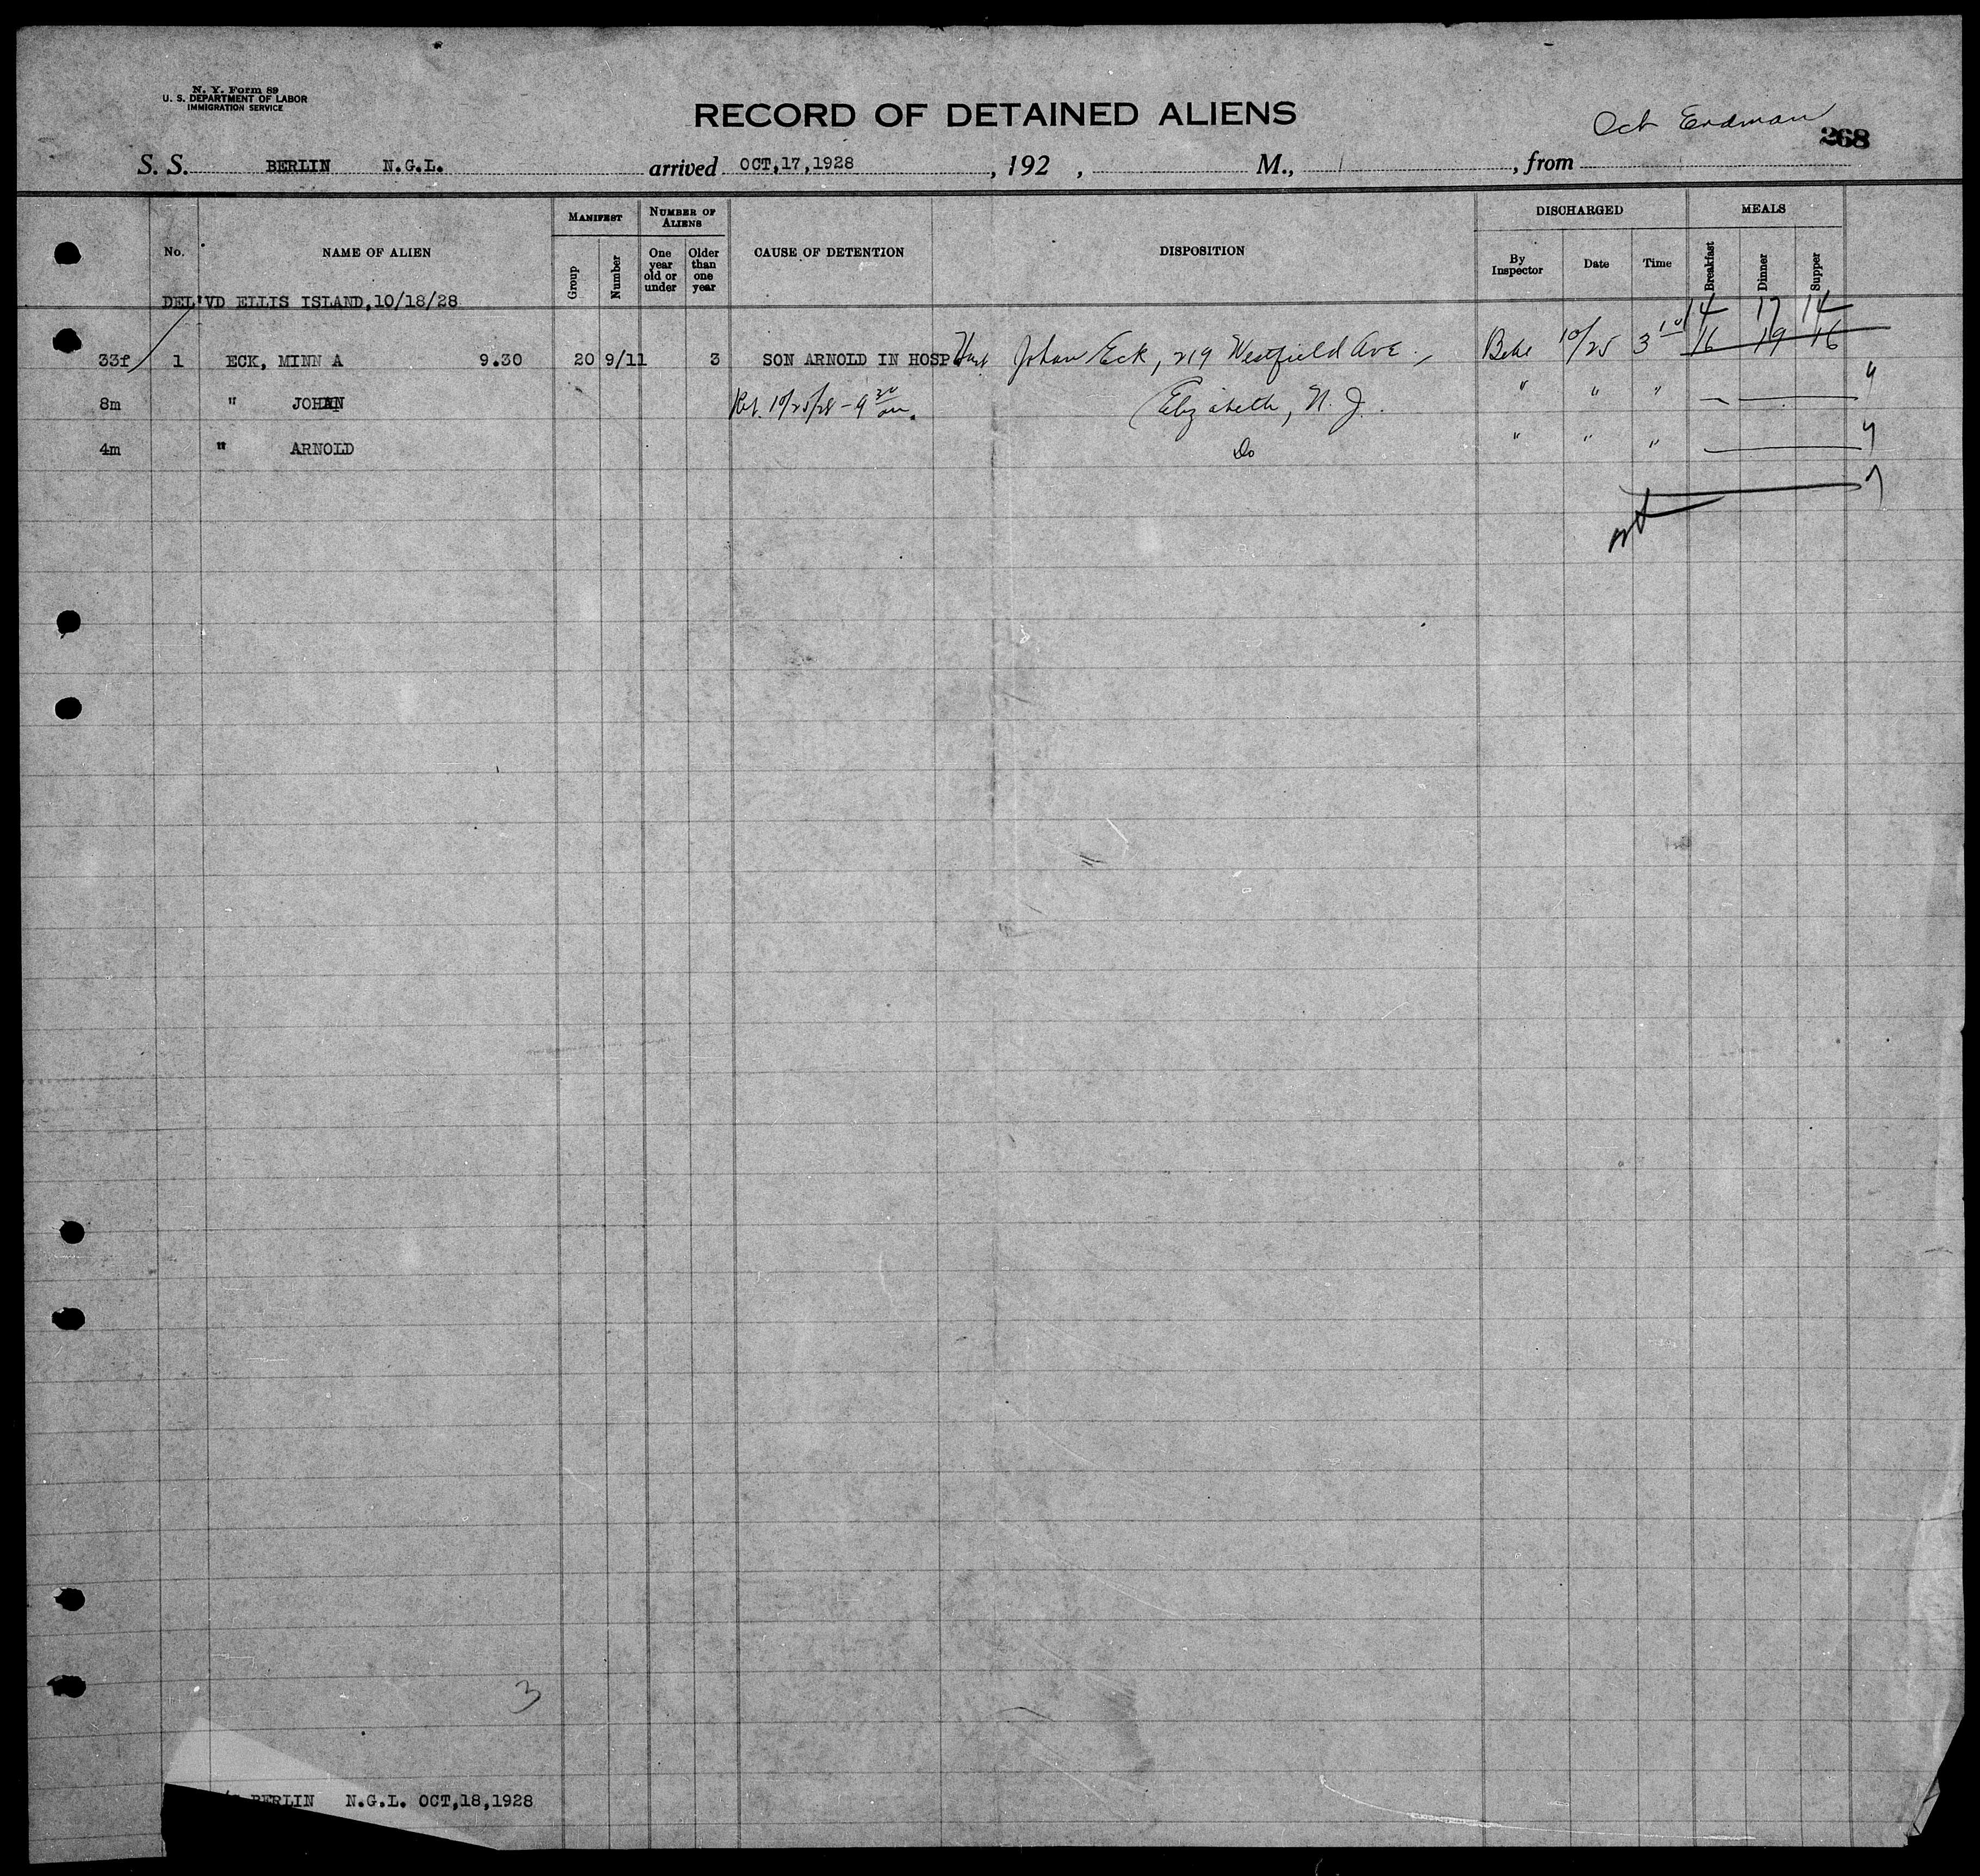 N. Y. Form 89
U. S. DEPARTMENT OF LABOR
IMMIGRATION SERVICE
RECORD OF DETAINED ALIENS
Oct Erdman
268
S. S. BERLIN N.G.L. arrived OCT,17,1928 , 192 , M., , from
No.
NAME OF ALIEN
MANIFEST
Group
Number
NUMBER OF ALIENS
One year old or under
Older than one year
CAUSE OF DETENTION
DISPOSITION
DISCHARGED
By Inspector
Date
Time
MEALS
Breakfast
Dinner
Supper
DEL'VD ELLIS ISLAND,10/18/28
14 17 14
33f 1 ECK, MINN A 9.30 20 9/11 3 SON ARNOLD IN HOSP Husb Johan Eck, 219 Westfield Ave. 10/25 3 10 16 19 16
8m " JOHAN Rel. 10/25/28 - 9 30 am. Elizabeth, N. J. " " "
4m " ARNOLD Do " " "
3
BERLIN N.G.L. OCT,18,1928